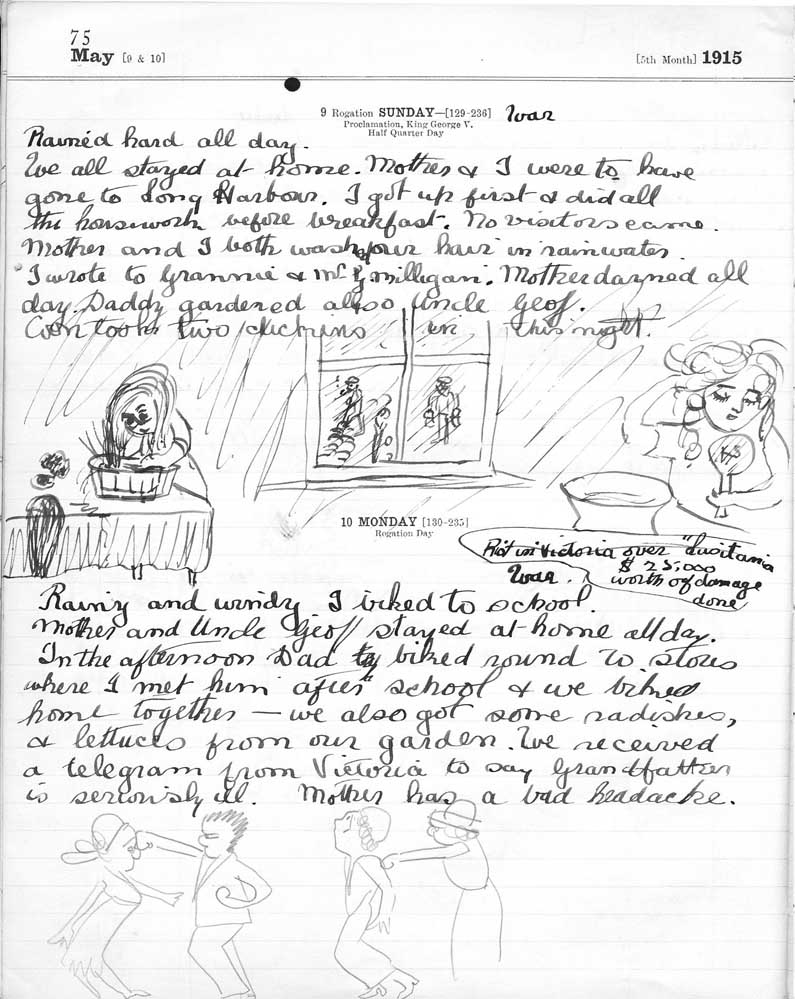 75
May [9 & 10]
[5th Month] 1915
9 Rogation SUNDAY—[129-236] War
Proclamation, King George V.
Half Quarter Day
Rained hard all day.
We all stayed at home. Mother & I were to have
gone to Long Harbour. I got up first & did all
the housework before breakfast. No visitors came.
Mother and I both washed our hair in rainwater.
I wrote to Grannie & Milligan. Mother darned all
day. Daddy gardened also Uncle Geof.
Coon took two chickins in this night.
10 MONDAY [130-235]
Rogation Day
Riot in Victoria over "Lusitania
$25,000
War. worth of damage
done
Rainy and windy. I biked to school.
Mother and Uncle Geof stayed at home all day.
In the afternoon Dad biked round to stores
where I met him after school & we biked
home together — we also got some radishes,
& lettuces from our garden. We received
a telegram from Victoria to say Grandfather
is seriously ill. Mother has a bad headache.